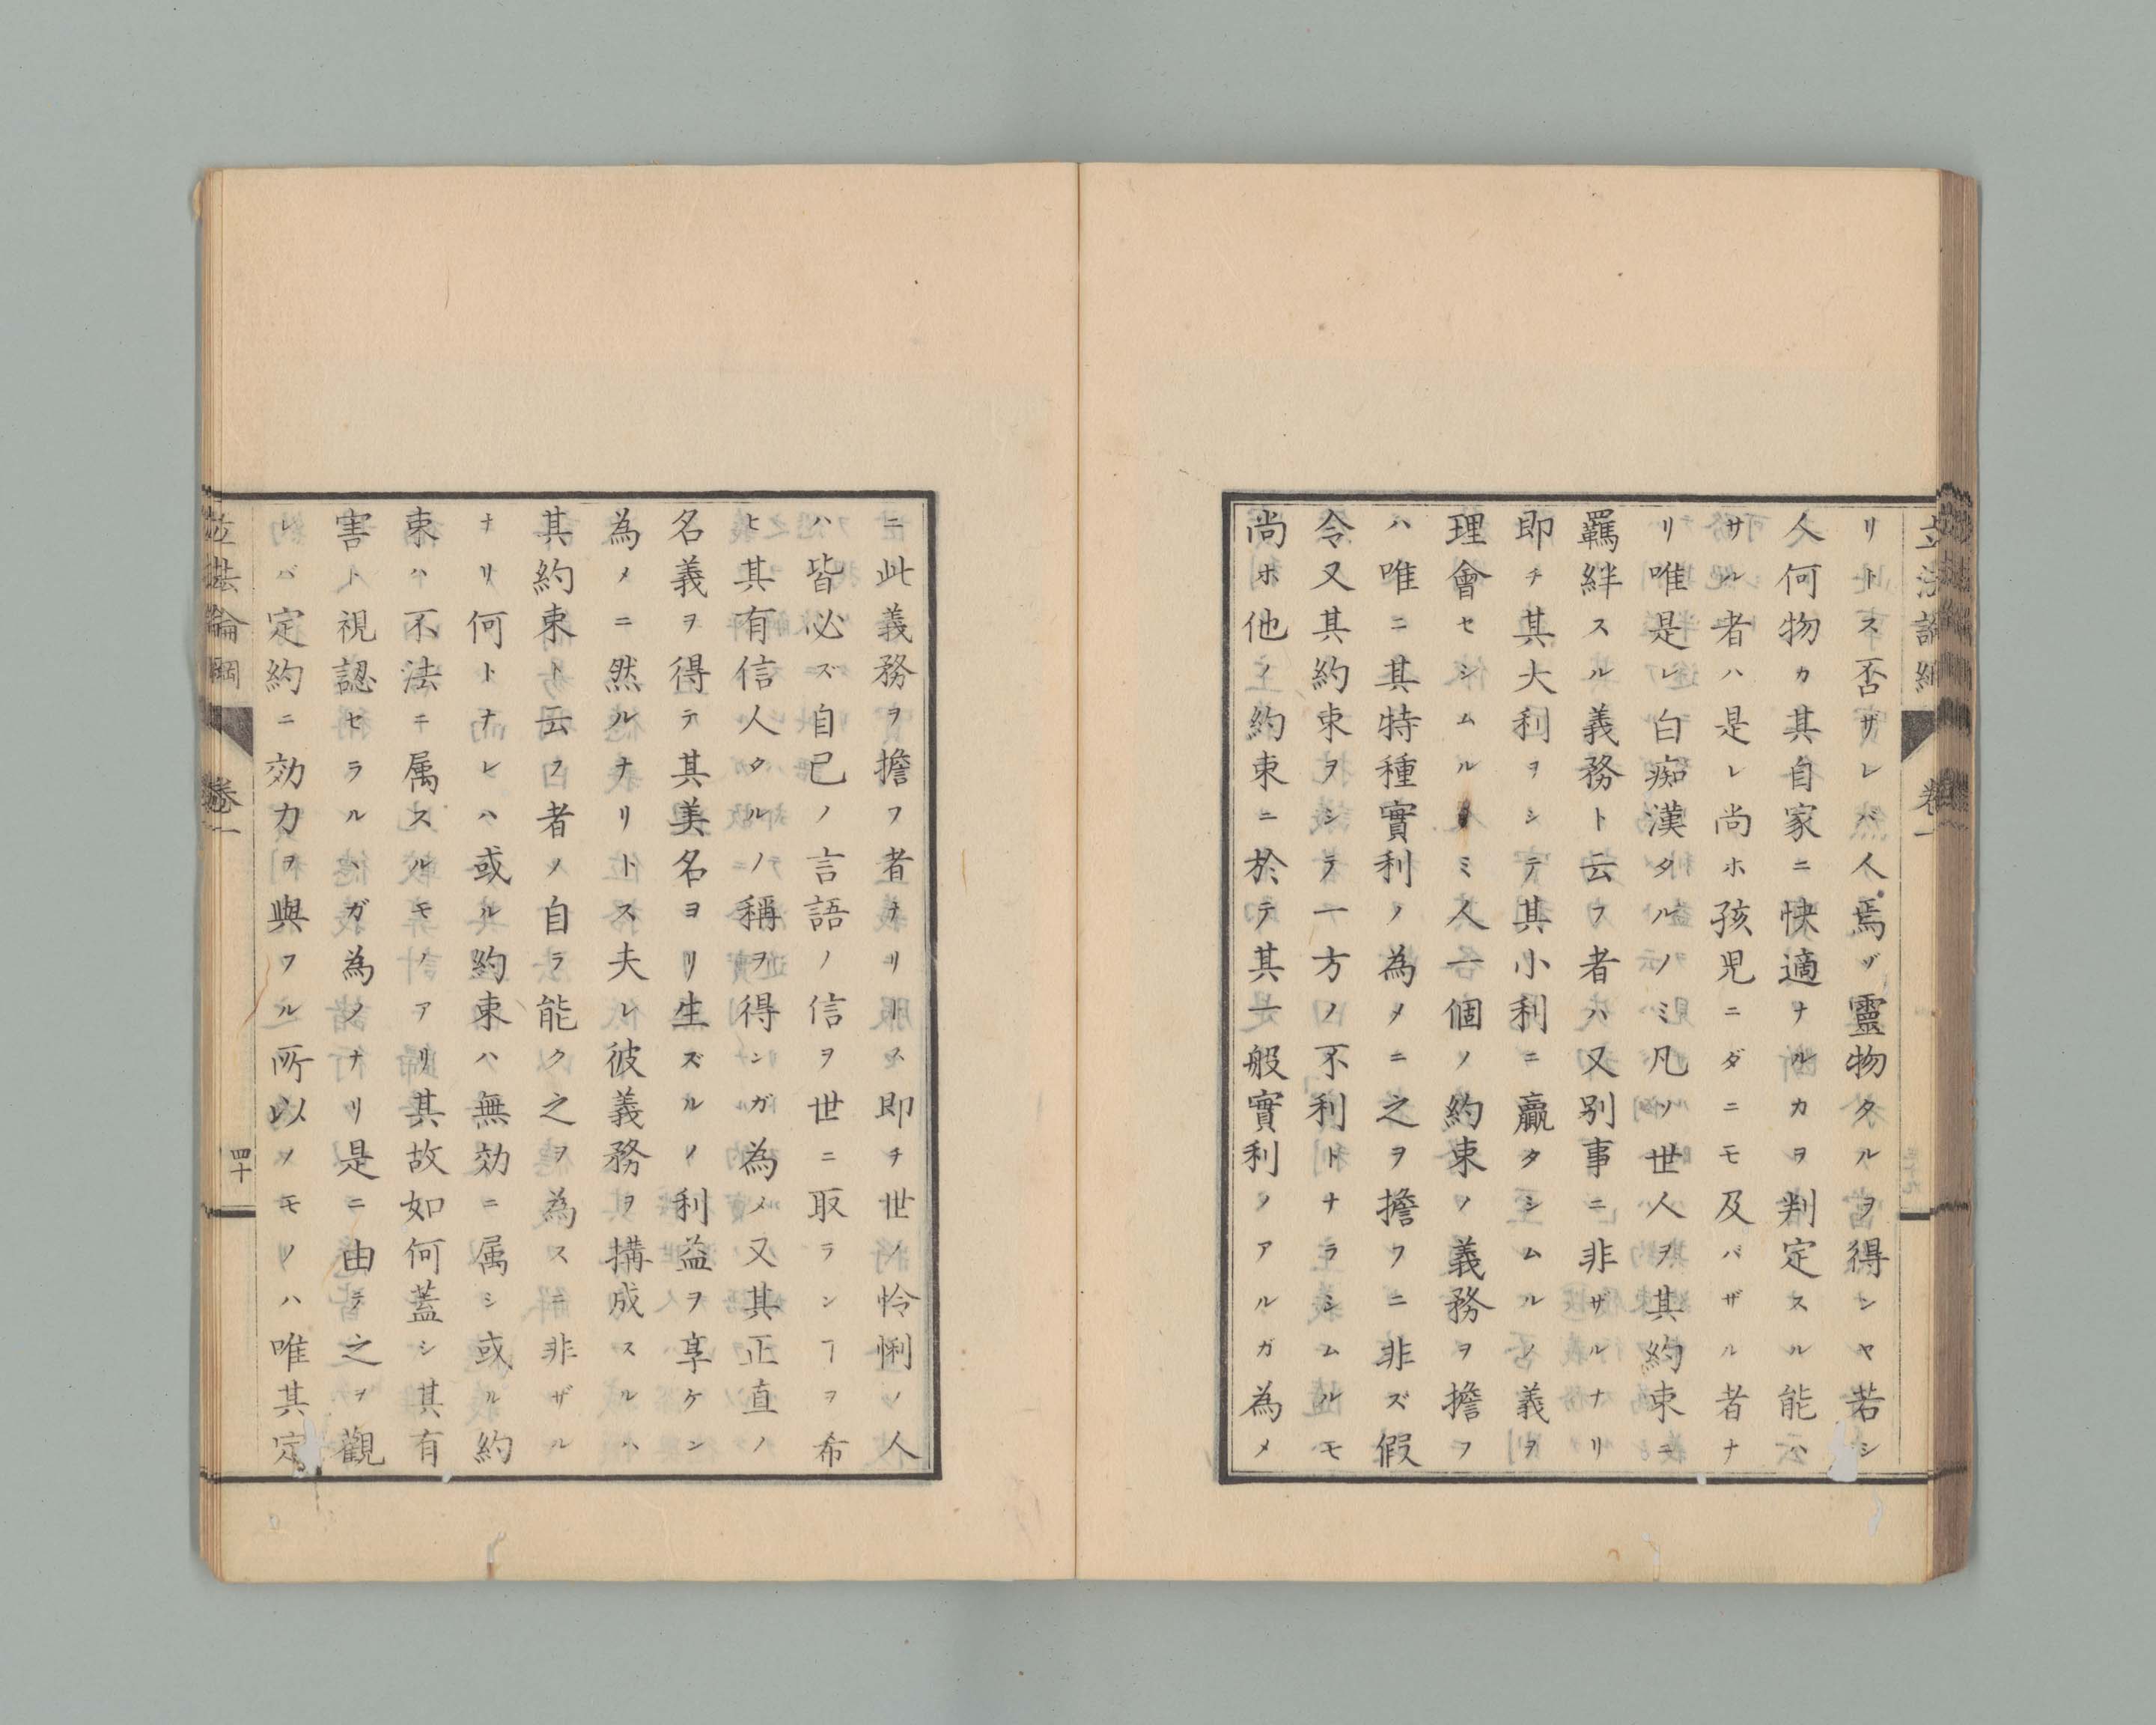 立法論綱 卷一
リトス否ザレバ人焉ゾ靈物タルヲ得ンヤ若シ
人何物カ其自家ニ快適ナルカヲ判定スル能ハ
サル者ハ是レ尚ホ孩児ニダニモ及バザル者ナ
リ唯是レ白痴漢タルノミ凡ソ世人ヲ其約束ニ
羈絆スル義務ト云フ者ハ又別事ニ非ザルナリ
即チ其大利ヲシテ其小利ニ贏タシムルノ義ヲ
理會セシムルノミ人一個ノ約束ノ義務ヲ擔フ
ハ唯ニ其特種實利ノ為メニ之ヲ擔フニ非ズ假
令又其約束ヲシテ一方ノ不利トナラシムルモ
尚ホ他ノ約束ニ於テ其一般實利ノアルガ為メ
ニ此義務ヲ擔フ者ナリトス即チ世ノ怜悧ノ人
ハ皆必ズ自已ノ言語ノ信ヲ世ニ取ランヿヲ希
ヒ其有信人タルノ稱ヲ得ンガ為メ又其正直ノ
名義ヲ得テ其美名ヨリ生ズルノ利益ヲ享ケン
為メニ然ルナリトス夫レ彼義務ヲ搆成スルハ
其約束ト云フ者ノ自ラ能ク之ヲ為スニ非ザル
ナリ何トナレハ或ル約束ハ無効ニ属シ或ル約
束ハ不法ニ属スルモノアリ其故如何蓋シ其有
害ト視認セラルヽガ為ノナリ是ニ由テ之ヲ觀
レバ定約ニ効力ヲ與フル所以ノモノハ唯其定
立法論綱 卷一 四十